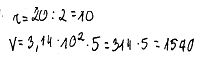 r=20:2=10
V=3,14·10²·5=314·5=1570